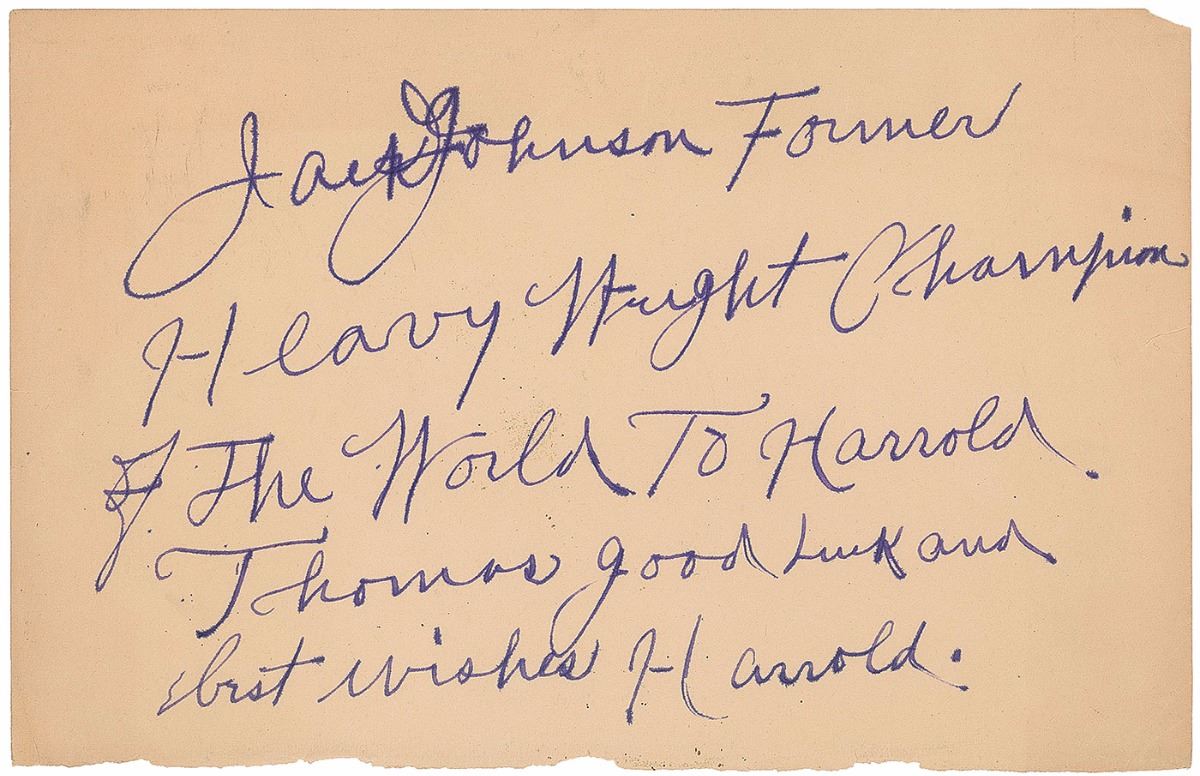 Jack Johnson Former
Heavy Weight Champion
of The World To Harrold.
Thomas good Luck and
best wishes Harrold.